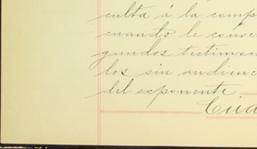 culta á la comp
cuando le conve
gundos testimon
los sin audienc
del exponente.
Cua